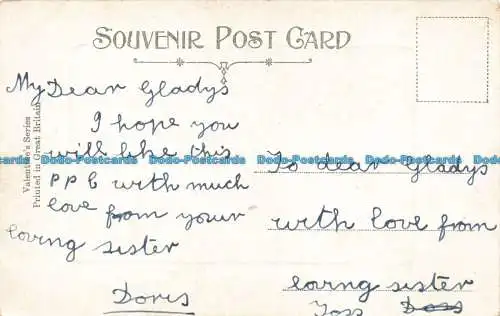 SOUVENIR POST CARD
My Dear Gladys
I hope you
will like this
P P C with much
love from your
loving sister
Doris
To dear Gladys
with love from
loving sister
Valentine's Series
Printed in Great Britain
Dodo-Postcards Dodo-Postcards Dodo-Postcards Dodo-Postcards